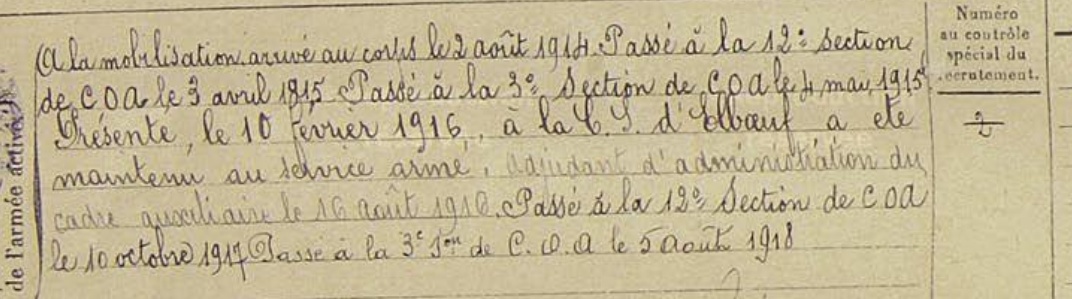 A la mobilisation arrivé au corps le 2 août 1914. Passé à la 12e Section
de C O A le 3 avril 1815. Passé à la 3e Section de C O A le 4 mai 1915
Présenté, le 10 février 1916, à la C. S. d'Elbœuf a été
maintenu au service armé, adjudant d'administration du
cadre auxiliaire le 16 août 1916. Passé à la 12e Section de C O A
le 10 octobre 1917 Passé à la 3e Son de C. O. A le 5 Août 1918
de l'armée active
Numéro
au contrôle
spécial du
recrutement.
2